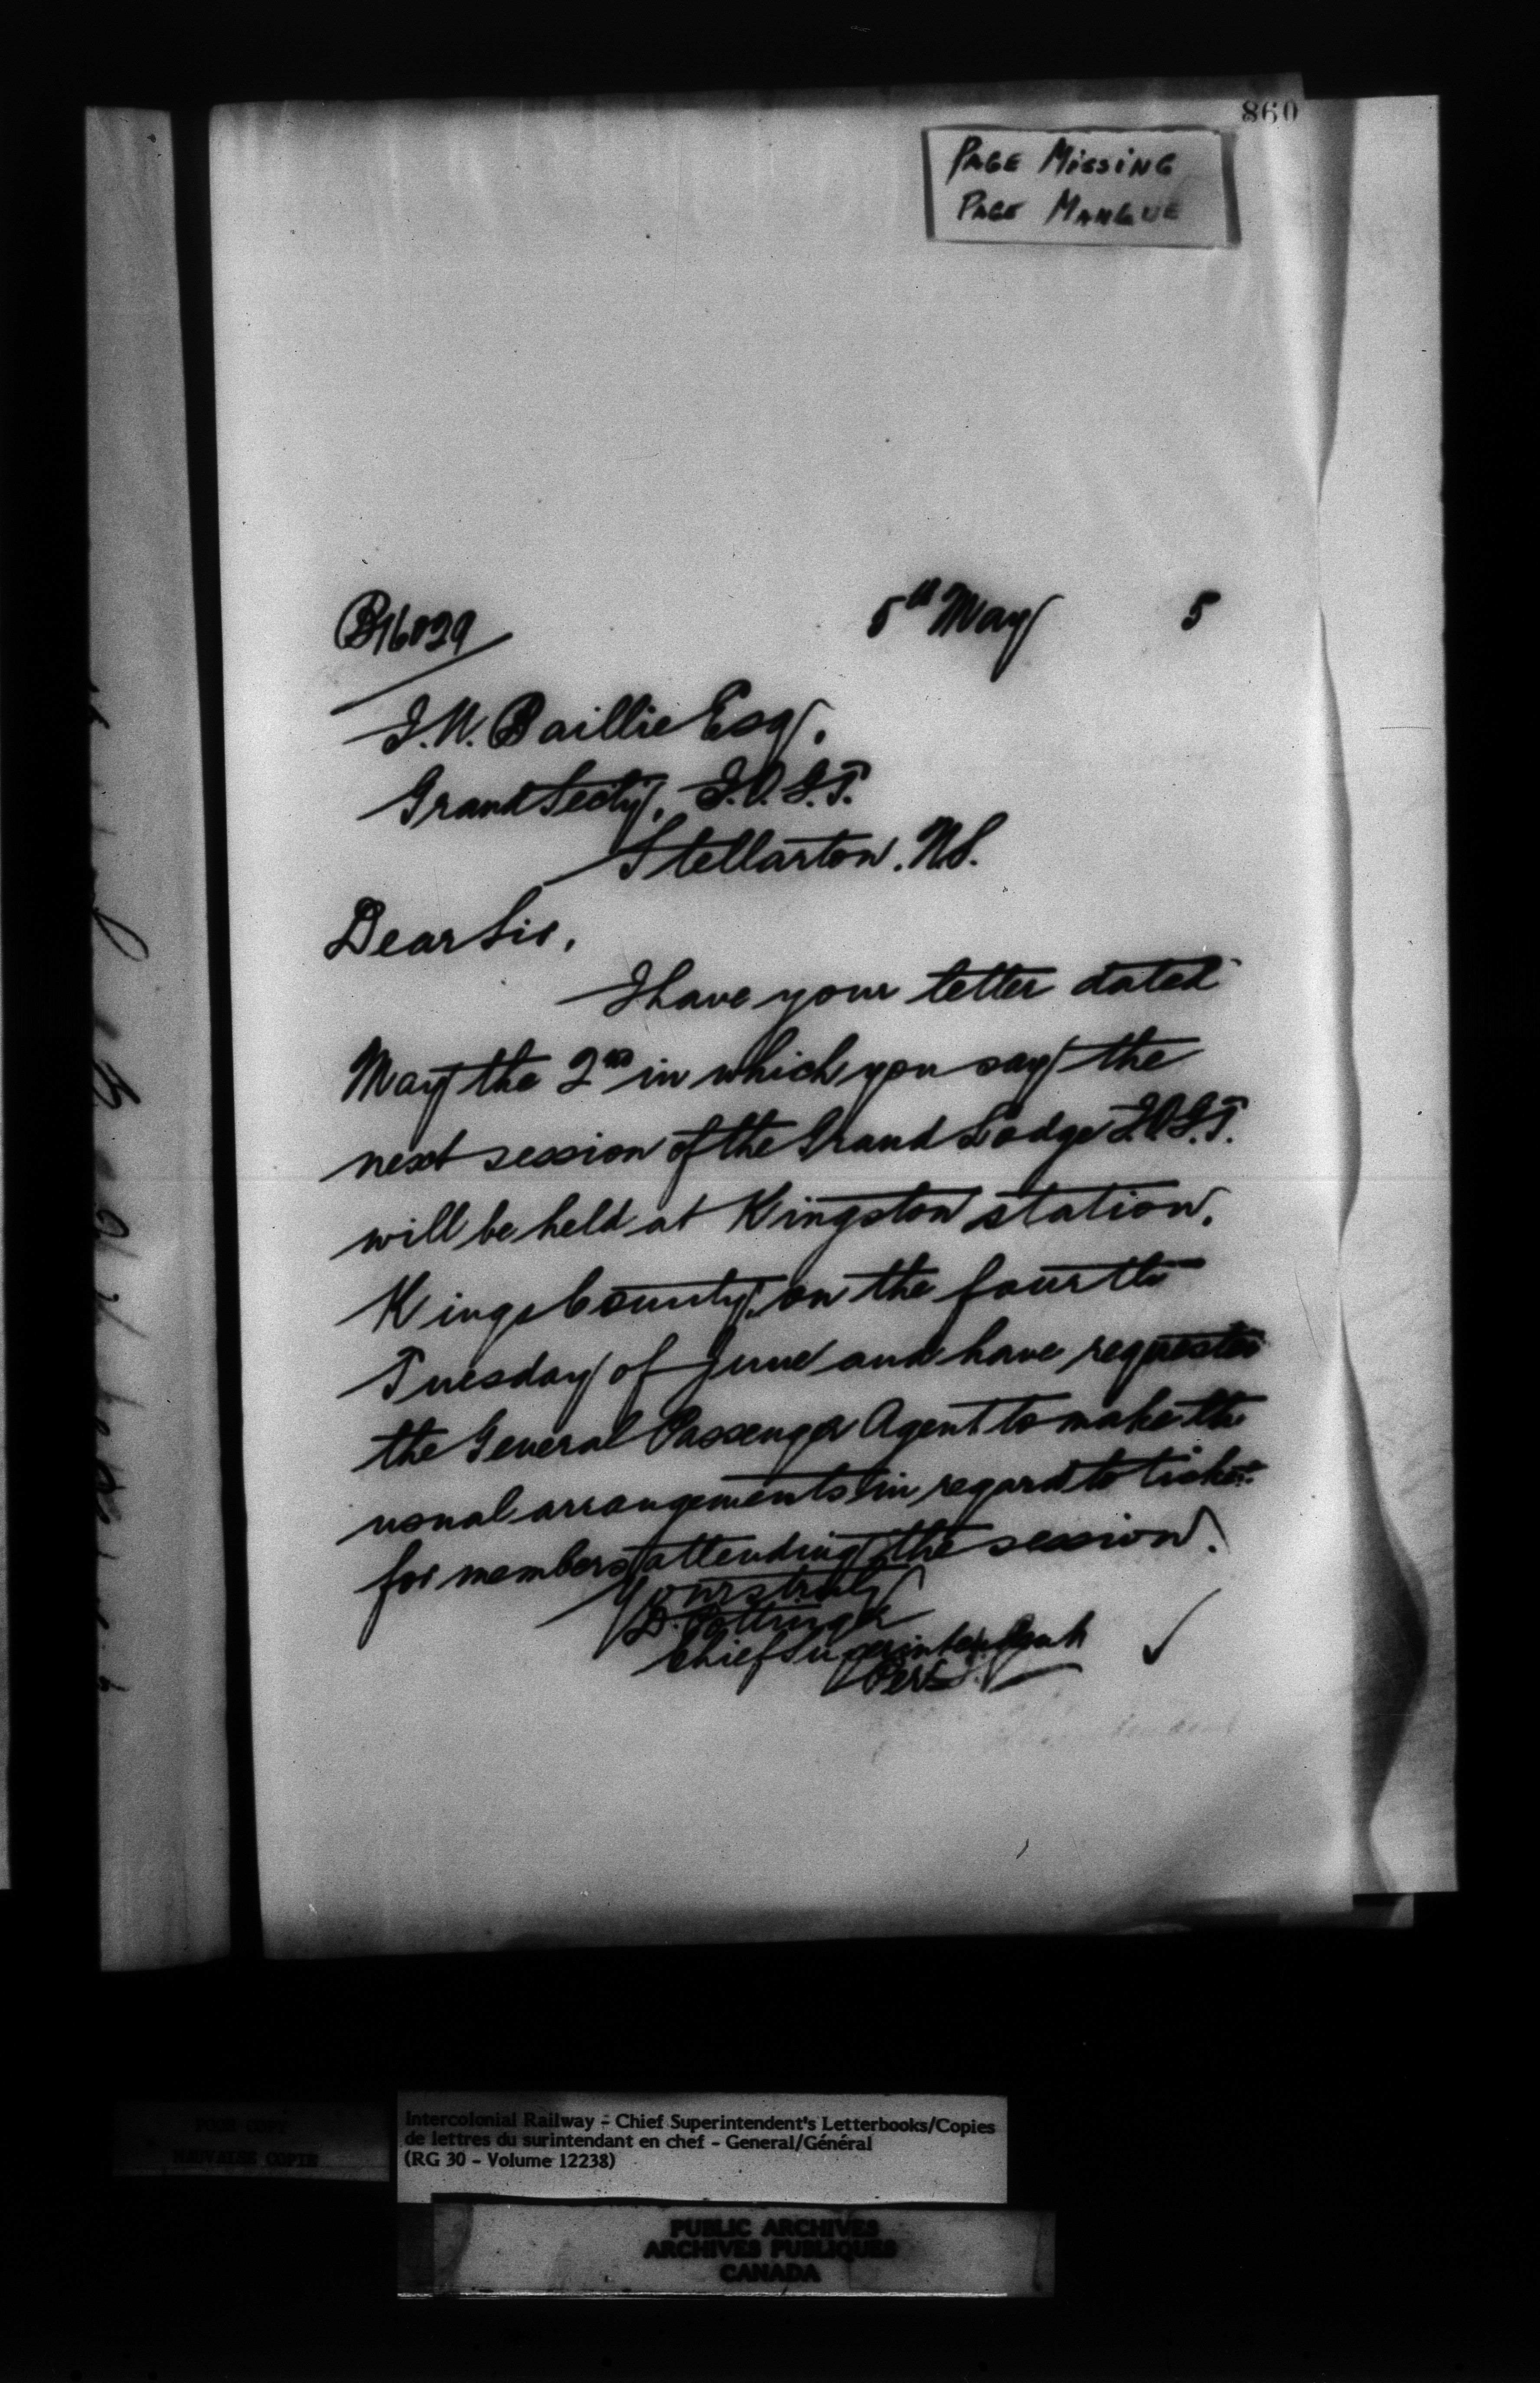 860
PAGE MISSING
PAGE MANQUE
B16029
5th May 5
I. W. Baillie Esq.
Grand Secty, I.O.G.T.
Stellarton. N.S.
Dear Sir,
I have your letter dated
May the 2nd in which you say the
next session of the Grand Lodge I.O.G.T.
will be held at Kingston station,
Kings County, on the fourth
Tuesday of June and have requested
the General Passenger Agent to make the
usual arrangements in regard to tickets
for members attending the session.
Yours truly
D. Pottinger
Chief Superintendent
Per
POOR COPY
MAUVAISE COPIE
Intercolonial Railway - Chief Superintendent's Letterbooks/Copies
de lettres du surintendant en chef - General/Général
(RG 30 - Volume 12238)
PUBLIC ARCHIVES
ARCHIVES PUBLIQUES
CANADA